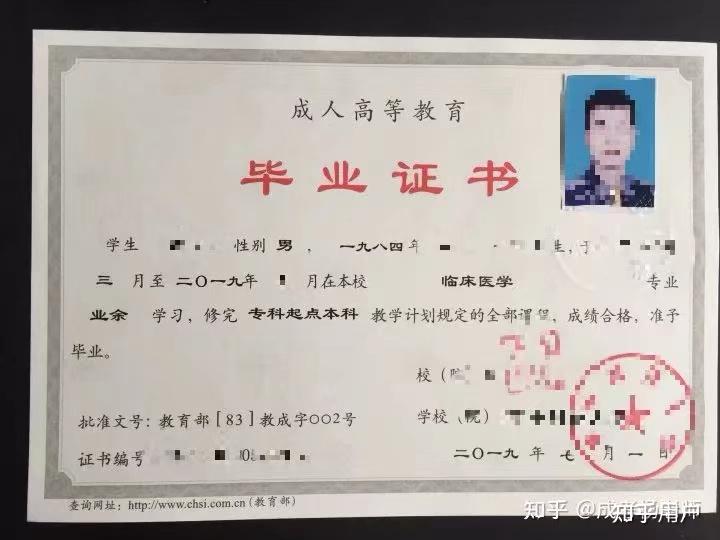 成人高等教育
毕业证书
学生 性别 男 ，一九八四年 生，于
三 月至 二〇一九年 月在本校 临床医学 专业
业余 学习，修完 专科起点本科 教学计划规定的全部课程，成绩合格，准予
毕业。
校（
批准文号：教育部［83］教成字〇〇2号 学校（院）
证书编号 二〇一九 年 七 月 一 日
查询网址：http://www.chsi.com.cn（教育部）
知乎
知乎用户